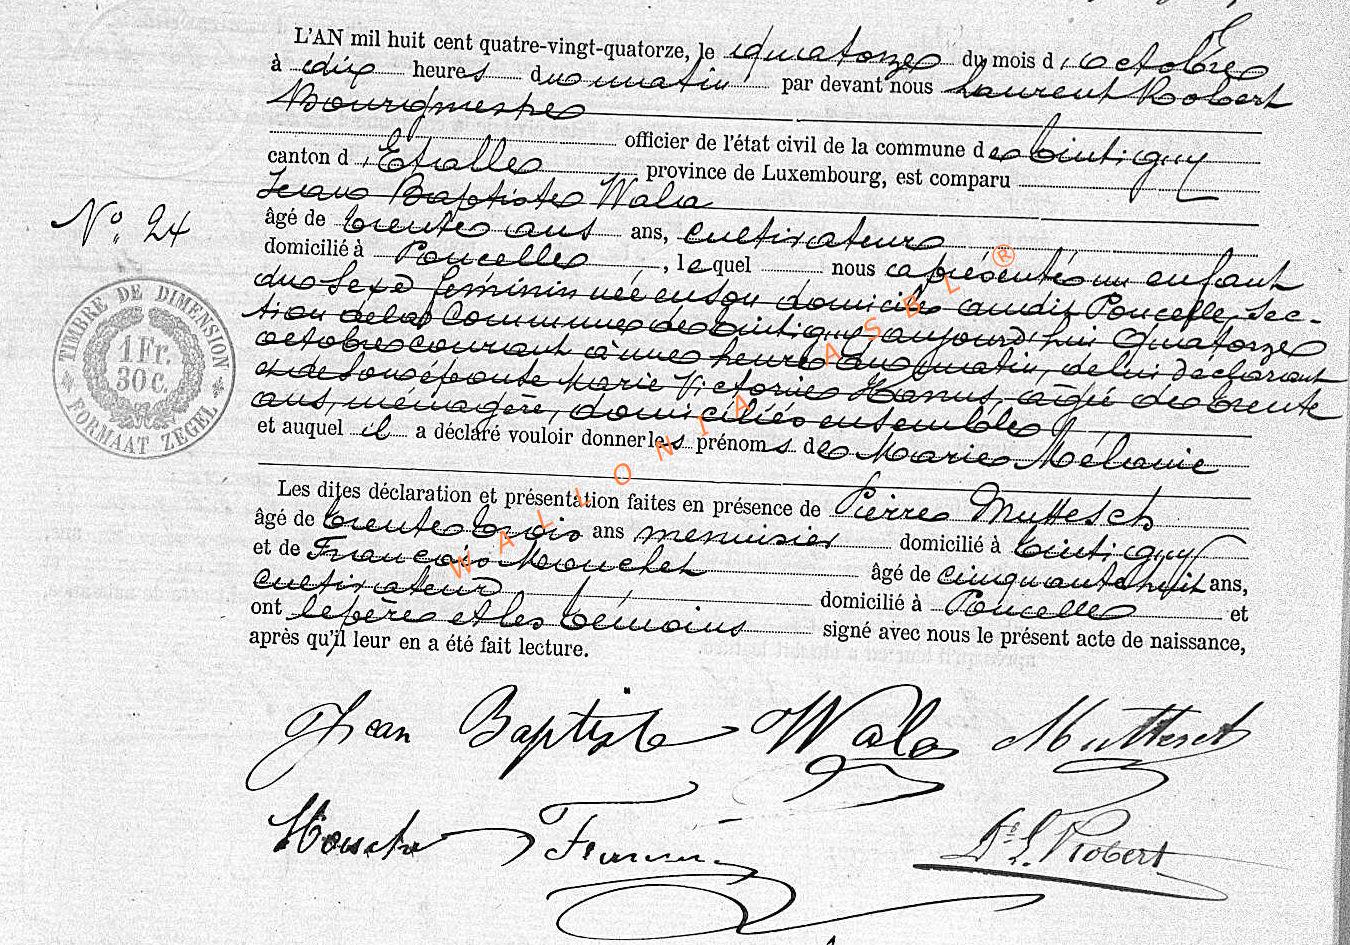 L'AN mil huit cent quatre-vingt-quatorze, le quatorze du mois d'octobre
à dix heures du matin par devant nous Laurent Robert
Bourgmestre
officier de l'état civil de la commune de Tintigny
canton d'Etalle province de Luxembourg, est comparu
Jean Baptiste Wala
âgé de trente ans ans, cultivateur
domicilié à Poncelle, lequel nous a présenté un enfant
du sexe féminin née en son domicile audit Poncelle, sec-
tion de la commune de Tintigny aujourd'hui quatorze
octobre courant à une heure du matin, de lui déclarant
et de son épouse Marie Victorine Hanus, âgée de trente
ans, ménagère, domiciliés ensemble
et auquel il a déclaré vouloir donner les prénoms de Marie Mélanie
Les dites déclaration et présentation faites en présence de Pierre Muttesch
âgé de trente trois ans menuisier domicilié à Tintigny
et de François Mouchet âgé de cinquante huit ans,
cultivateur domicilié à Poncelle et
ont le père et les témoins signé avec nous le présent acte de naissance,
après qu'il leur en a été fait lecture.
No. 24
TIMBRE DE DIMENSION
1 Fr.
30 C.
FORMAAT ZEGEL
WALLONIA ASBL ®
Jean Baptiste Wala Muttesch
Dr L. Robert